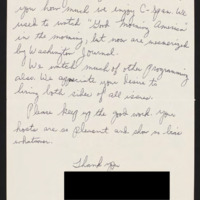 you how much we enjoy C-Span. We
used to watch "Good Morning America"
in the morning, but now are mesmerized
by Washington Journal.
We watch much of other programming
also. We appreciate your desire to
bring both sides of all issues.
Please keep up the good work. your
hosts are so pleasant and show no bias
whatsoever.
Thank you